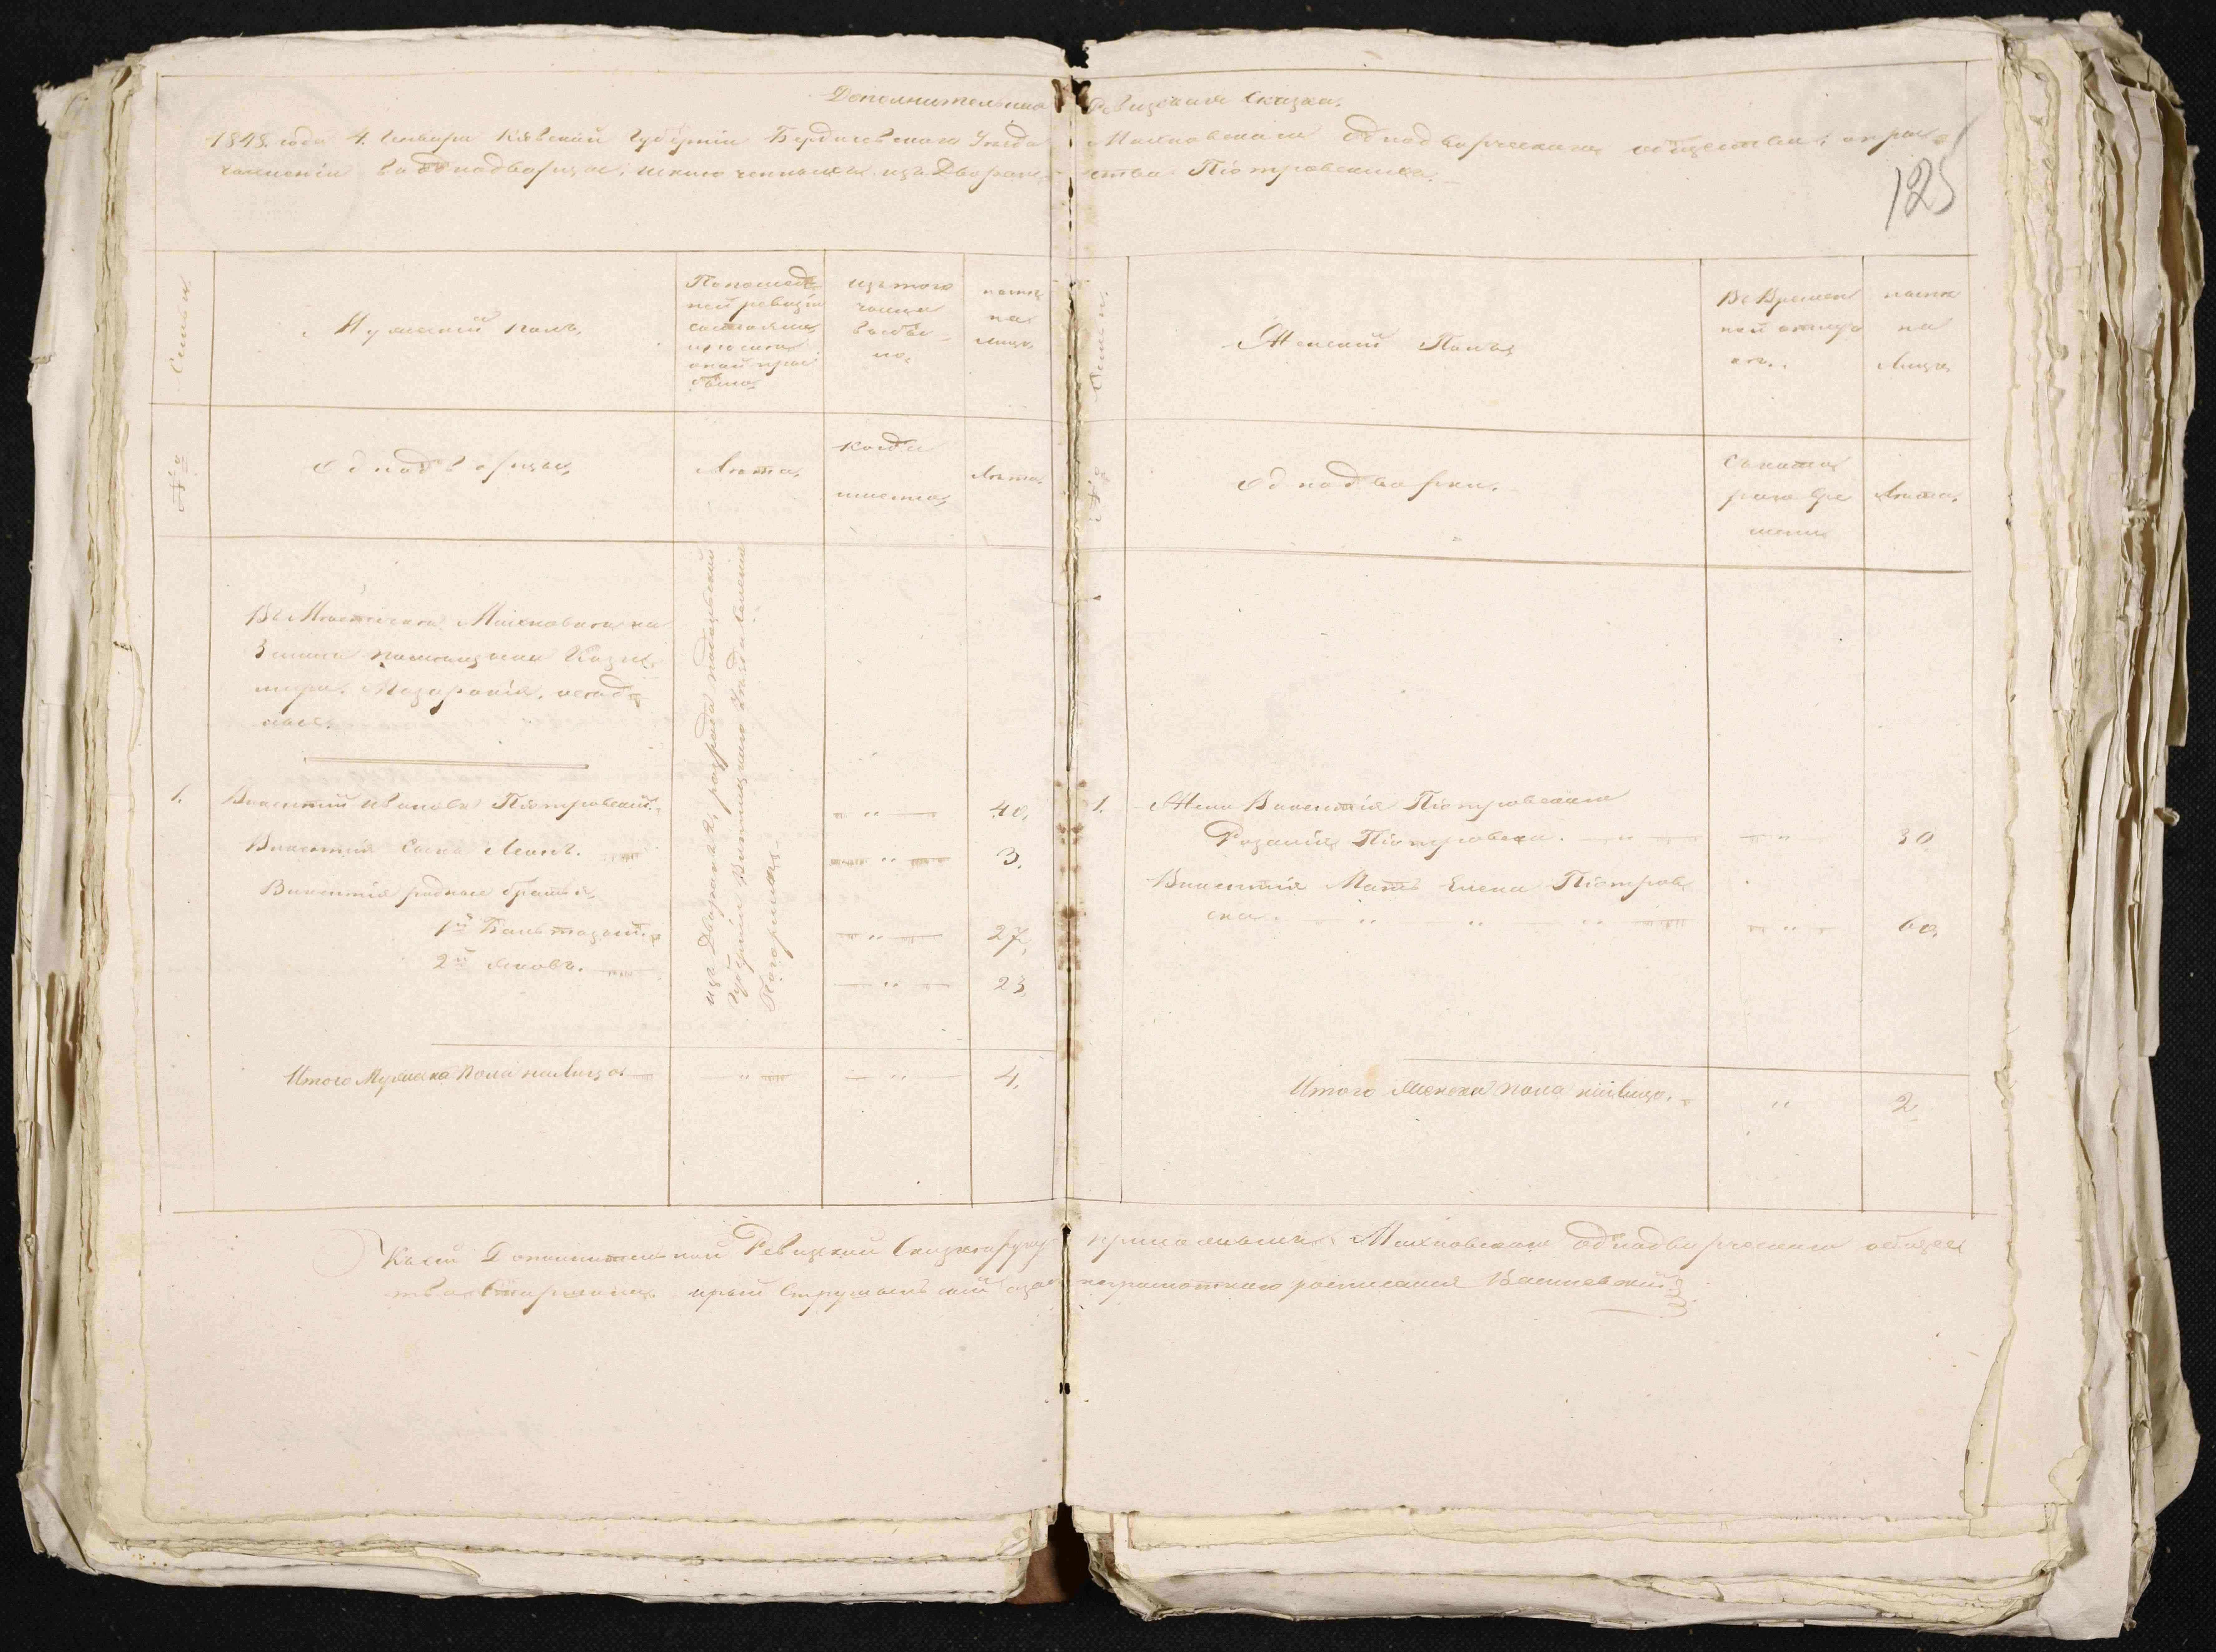 Дополнительная Ревизская Сказка.
1848. года 4. Генваря Кіевской Губерніи Бердичевскаго Уезда Махновскаго Однодворческаго общества, о при
численіи въ Однодворцы, исключенныхъ изъ Дворянства Піотровскихъ.
125
Семьи
Мужеский полъ,
По последней ревизіи состояло и после оной прибыло
Изъ того числа выбыло
ныне на лицо
№
Однодворцы,
Лета,
Когда именно,
Лета
Въ Местечке Махновке на
Земли помещика Казимира
Мазаракія, оседлые.
изъ Дворянъ, разряда Подольской
Губерніи Винницкаго Уезда селения
1. Викентий Ивановъ Піотровский. — „ — 40.
Викентия Сынъ Леонъ. — „ — 3.
Викентія родные братья,
1й Бальтазаръ. — „ — 27,
2й Яковъ. — „ — 23,
Итого Мужеска пола на лицо — „ — „ — 4.
Семьи.
Женский Полъ,
Въ Временной отлучке.
ныне на Лицо
№
Однодворки.
Съ котораго времени
Лета.
1. Жена Викентія Піотровскаго
Розалія Піотровска. — „ — „ 30
Викентія Мать Елена Піотровска. — „ — „ — „ — „ — 60,
Итого Женска пола на лицо. — „ 2
Къ сей Дополнительной Ревизской Сказке руку приложилъ Махновскаго однодворческаго общества Старшина неграмотнаго росписался